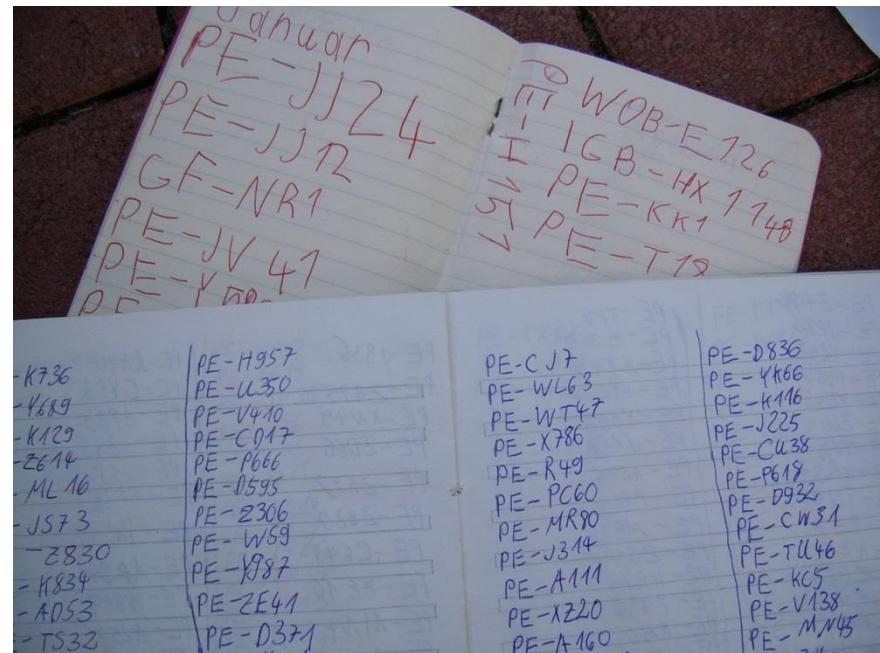 Januar
PE-JJ24
PE-JJ12
GF-NR1
PE-JV 41
PE-
WOB-E126
IGB-HX 1148
PE-KK1
PE-T18
-K736
-Y689
-K129
-Z614
-ML16
-J573
-Z830
-K834
-AD53
-TS32
PE-H957
PE-U350
PE-V410
PE-CD17
PE-P666
PE-D595
PE-Z306
PE-W59
PE-Y987
PE-ZE41
PE-D371
PE-CJ7
PE-WL63
PE-WT47
PE-X786
PE-R49
PE-PC60
PE-MR80
PE-J314
PE-A111
PE-XZ20
PE-A160
PE-D836
PE-YK66
PE-K116
PE-J225
PE-CU38
PE-P618
PE-D932
PE-CW31
PE-TU46
PE-KC5
PE-V138
PE-MN45